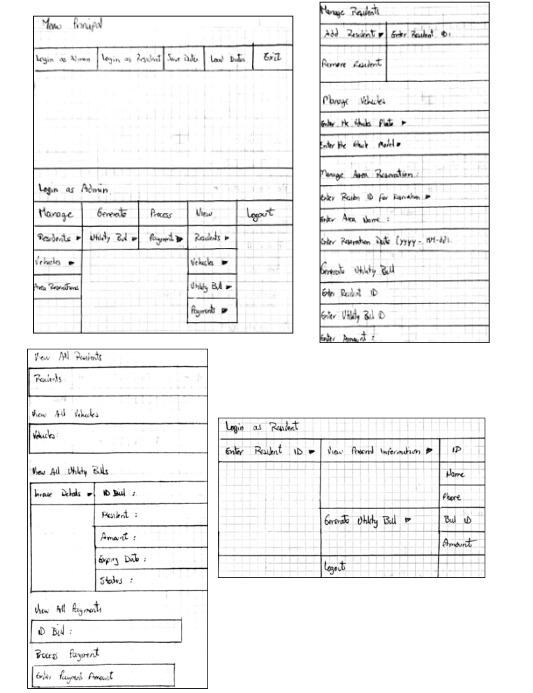 Menu Principal
Login as Admin Login as Resident Save Data Load Data Exit
Login as Admin
Manage Generate Process View Logout
Residents Utility Bill Payment Residents
Vehicles Vehicles
Area Reservations Utility Bill
Payments
Manage Residents
Add Resident Enter Resident ID:
Remove Resident
Manage Vehicles
Enter the Plate
Enter the Model
Manage Area Reservation:
Enter ID for
Enter Area Name :
Enter Reservation Date (yyyy-MM-dd):
Generate Utility Bill
Enter Resident ID
Enter Utility Bill ID
Enter Amount :
View All Residents
Residents
View All Vehicles
Vehicles
View All Utility Bills
Invoice Details ID Bill :
Resident :
Amount :
Expiry Date :
Status :
View All Payments
ID Bill :
Process Payment
Enter Payment Amount
Login as Resident
Enter Resident ID View Personal Information ID
Name
Phone
Generate Utility Bill Bill ID
Amount
Logout